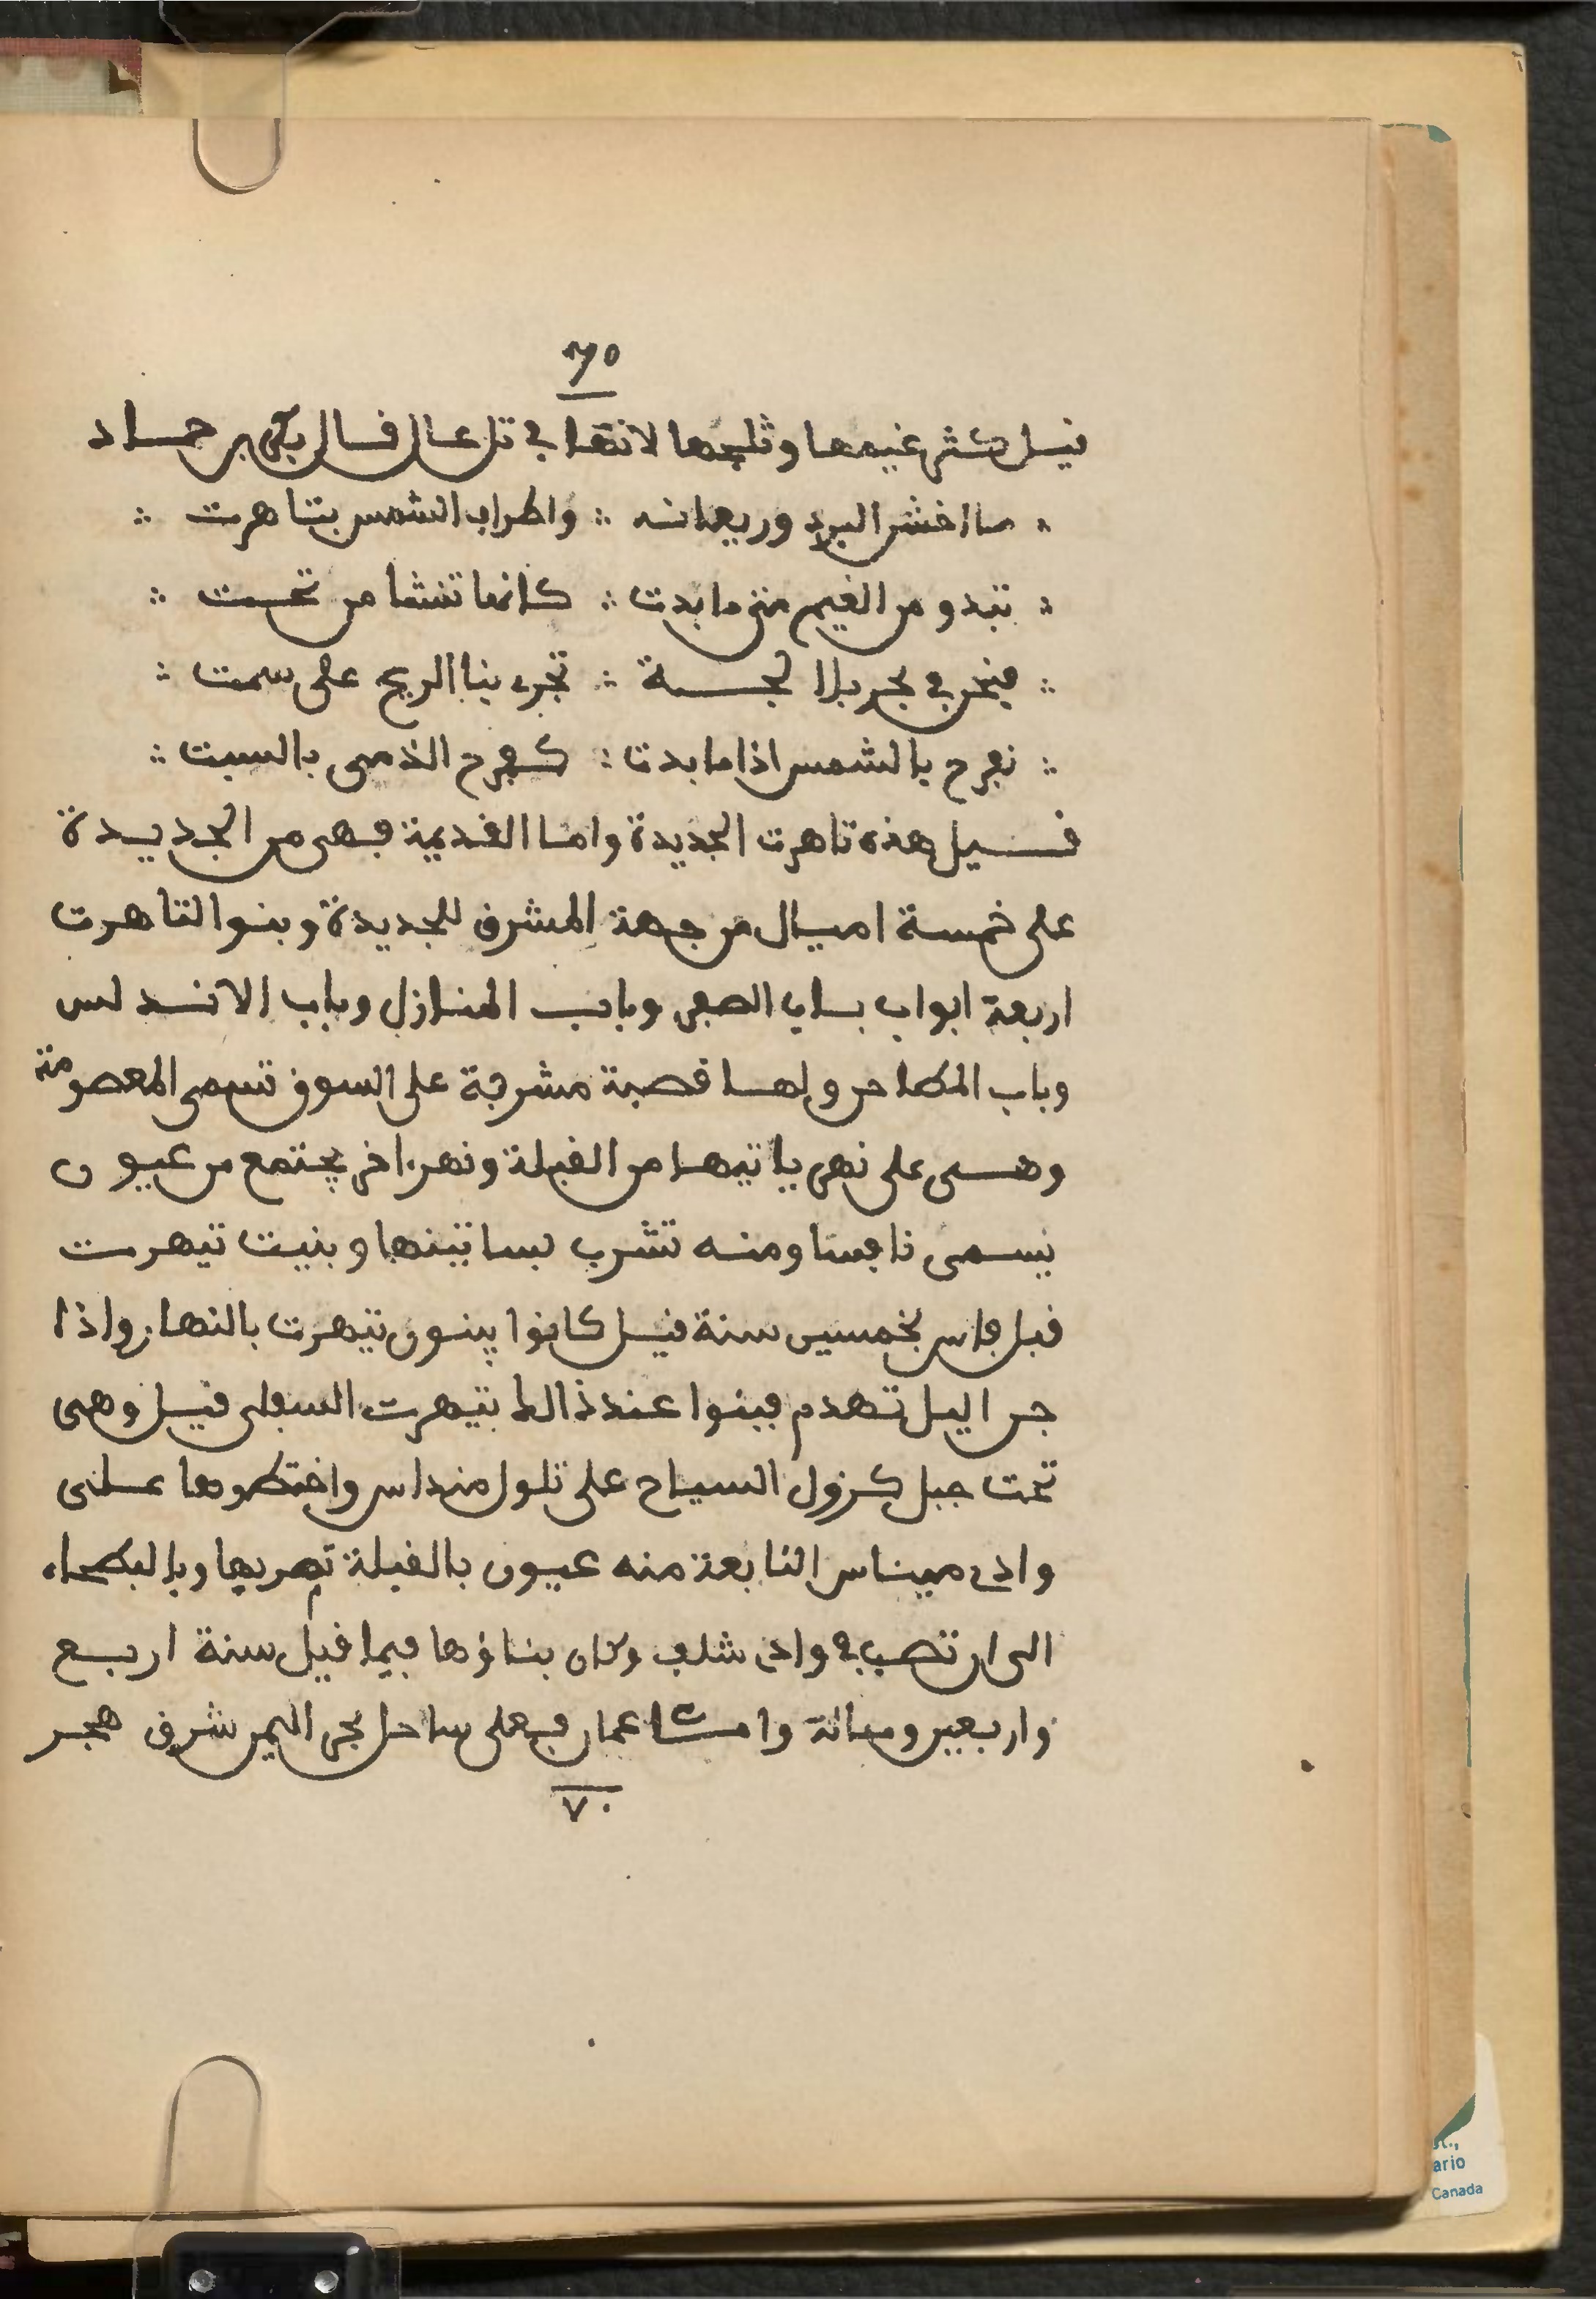 ٦٥
قيل كثر غيمها وثلجها لانها في تل عال قال بكر بن حماد
∴ ما اخشن البرد وريعانه ∴ واطراب الشمس بتاهرت ∴
∴ تبدو من الغيم متى ما بدت ∴ كانها تنشا من تحت ∴
∴ فنحن في بحر بلا لجة ∴ تجرى بنا الريح على سمت ∴
∴ نفرح بالشمس اذا ما بدت ∴ كفرح الذمى بالسبت ∴
قيل هذه تاهرت الجديدة واما القديمة فهى من الجديدة
على خمسة اميال من جهة المشرق للجديدة وبنوا لتاهرت
اربعة ابواب باب الصفى وباب المنازل وباب الاندلس
وباب المطاحن ولها قصبة مشرفة على السوق تسمى المعصومة
وهى على نهر ياتيها من القبلة ونهر اخر يجتمع من عيون
يسمى تافسا ومنه تشرب بساتينها وبنيت تيهرت
قبل فاس بخمسين سنة قيل كانوا يبنون تيهرت بالنهار واذا
جن اليل تهدم فبنوا عند ذالك تيهرت السفلى قيل وهى
تحت جبل كزول السياح على تلول منداس واختطوها على
وادى ميناس النابعة منه عيون بالقبلة تمر بها وبالبطحاء
الى ان تصب في وادى شلف وكان بناؤها فيما قيل سنة اربع
واربعين ومائة وامـا عمان فعلى ساحل بحر اليمن شرق هجر
٧٠
ario
Canada